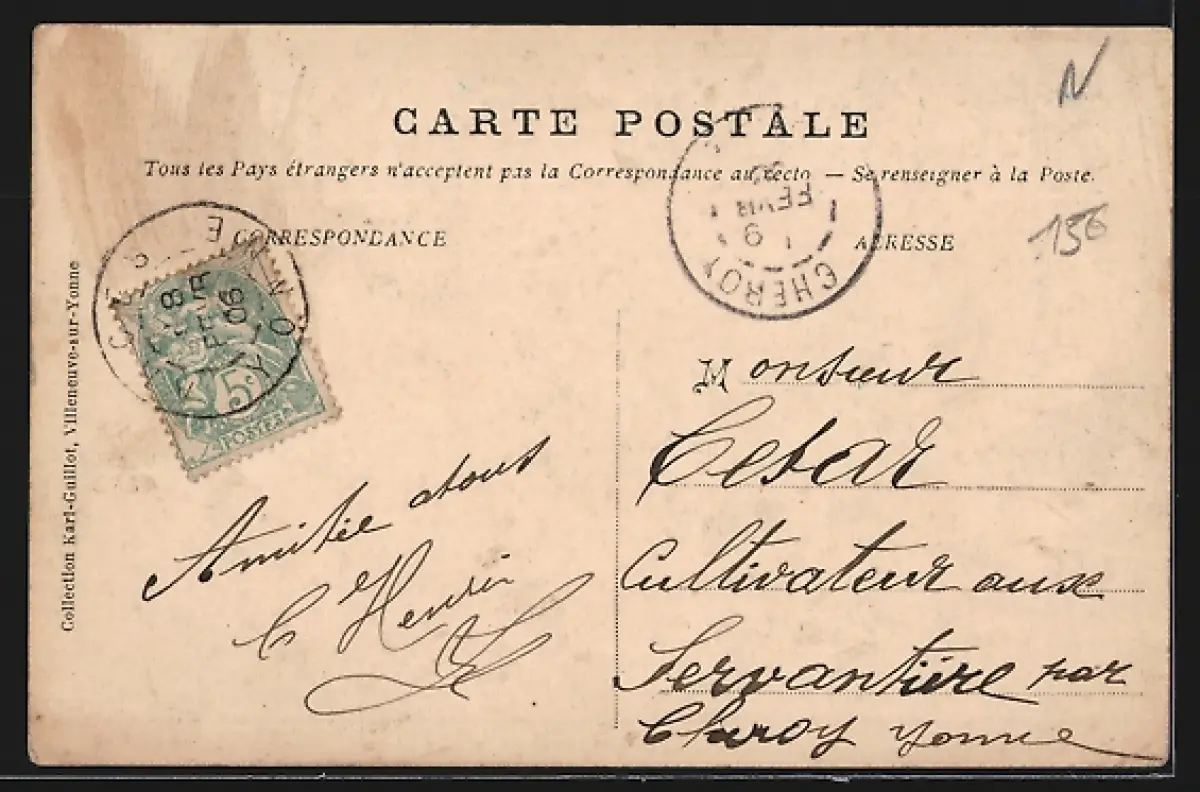 CARTE POSTALE
Tous les Pays étrangers n'acceptent pas la Correspondance au recto — Se renseigner à la Poste.
CORRESPONDANCE
ADRESSE
N
156
CHEROY
9
FEVR
YONNE
8
FEVR
06
5c
POSTES
Collection Karl-Guillot, Villeneuve-sur-Yonne
Amitié atous
C Henri
Monsieur
Cesar
Cultivateur aux
Servantière par
Cheroy Yonne